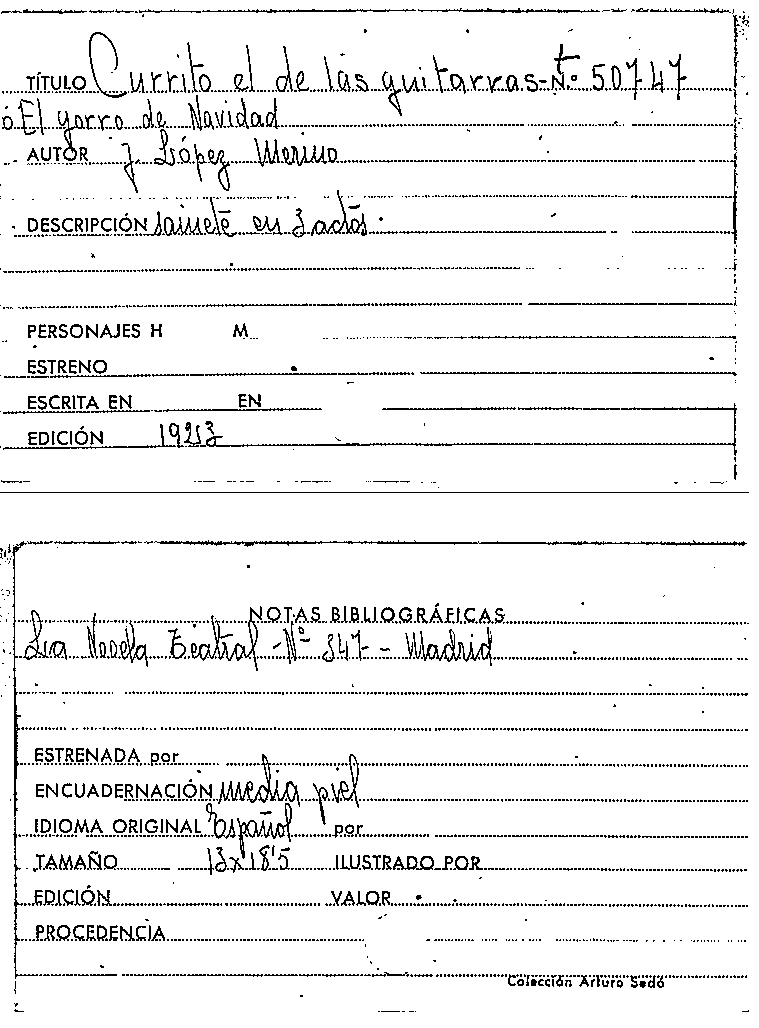 TÍTULO Currito el de las guitarras - N.º 50747
ó El gorro de Navidad
AUTOR J López Merino
DESCRIPCIÓN sainete en 3 actos.
PERSONAJES H M
ESTRENO
ESCRITA EN EN
EDICIÓN 1923
NOTAS BIBLIOGRÁFICAS
La Novela Teatral - Nº 347 - Madrid
ESTRENADA por
ENCUADERNACIÓN media piel
IDIOMA ORIGINAL Español por
TAMAÑO 13x18'5 ILUSTRADO POR
EDICIÓN VALOR
PROCEDENCIA
Colección Arturo Sedó